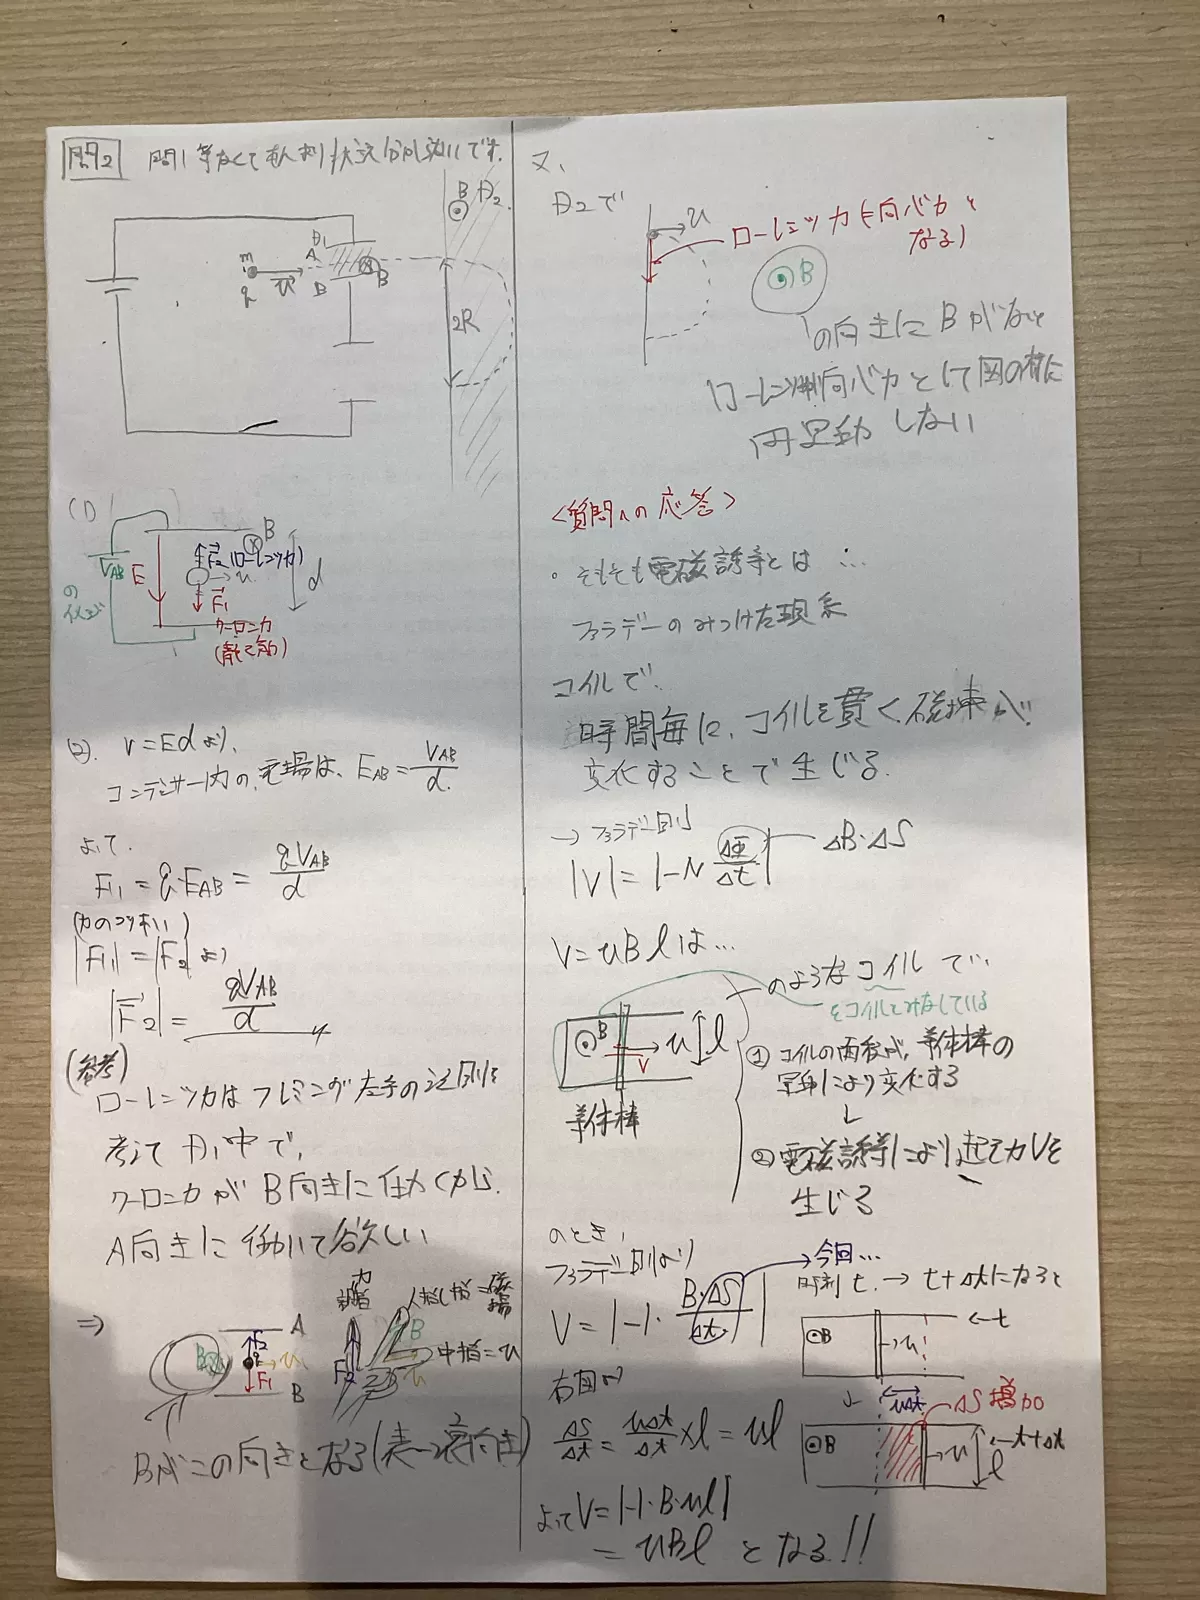 問2 問1等なくてもんだい大丈夫
m
q
u
D1
A
B
B
B
D2
2R
(1)
VAB
の
イメージ
E
B
F2(ローレンツ力)
u
F1
クーロン力
(静電気)
d
(2). V=Edより、
コンデンサー内の電場は、EAB=VAB/d
よって.
F1=q・EAB=qVAB/d
(力のつりあい)
|F1|=|F2|より
|F2|=qVAB/d
(参考)
ローレンツ力はフレミング左手の法則を
考えてD1中で、
クーロン力がB向きに働くから.
A向きに働いて欲しい
⇒
B
A
F2
q
u
F1
B
力
親指
F2
人指し指=磁場
B
中指=u
u
Bがこの向きとなる(表→裏向き)
又、
D2で
u
ローレンツ力(向心力と
なる)
B
の向きにBがないと
ローレンツ力が向心力として図の様に
円運動しない
<質問への応答>
・そもそも電磁誘導とは…
ファラデーのみつけた現象
コイルで、
時間毎に、コイルを貫く磁束が
変化することで生じる.
→ファラデー則
|V|=|-N ΔΦ/Δt|
ΔB・ΔS
V=uBlは…
のようなコイルで…
をコイルとみなしている
B
u
l
V
導体棒
① コイルの面積が、導体棒の
運動により変化する
↓
② 電磁誘導により起電力Vを
生じる
のとき、
ファラデー則より
V=|-1・B・ΔS/Δt|
→今回…
時刻t. → t+Δtになると
B
u
←t
右図が
ΔS/Δt=uΔt/Δt×l=ul
↓
uΔt
ΔS増加
B
u
l
←t+Δt
よってV=|-1・B・ul|
=uBl となる!!